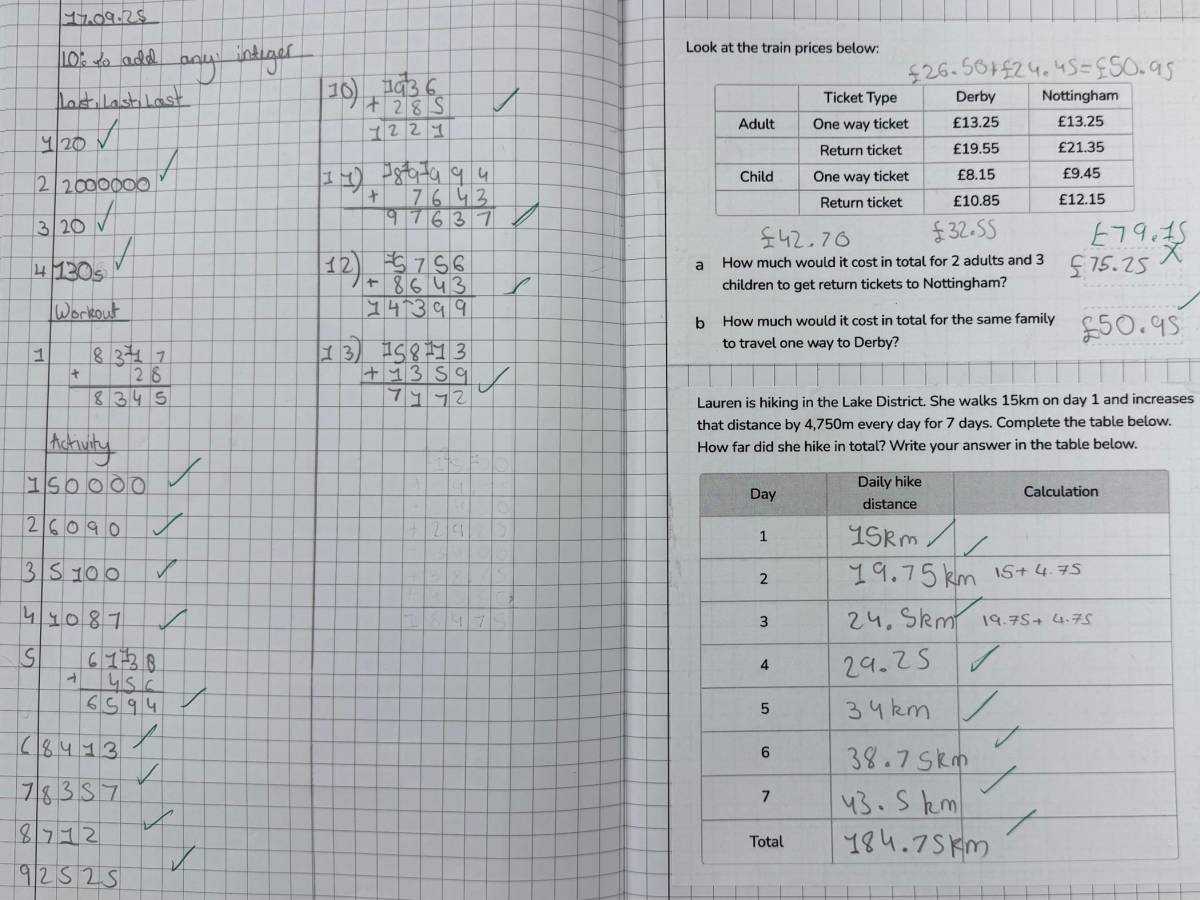 17.09.25
LO: to add any integer
Last, Last, Last
1 20 ✓
2 2000000 ✓
3 20 ✓
4 130s ✓
Workout
1 8317
+ 28
8345
Activity
1 50000 ✓
2 6090 ✓
3 5100 ✓
4 1087 ✓
5 6138
+ 456
6594 ✓
6 8413 ✓
7 8357 ✓
8 712 ✓
9 2525 ✓
10) 936
+ 285 ✓
1221
11) 89994
+ 7643
97637 ✓
12) 5756
+ 8643 ✓
14399
13) 5813
+ 1359 ✓
7172
Look at the train prices below:
£26.50+£24.45=£50.95
Ticket Type Derby Nottingham
Adult One way ticket £13.25 £13.25
Return ticket £19.55 £21.35
Child One way ticket £8.15 £9.45
Return ticket £10.85 £12.15
£42.70 £32.55 £79.15
a How much would it cost in total for 2 adults and 3 £75.25 X
children to get return tickets to Nottingham?
b How much would it cost in total for the same family £50.95 ✓
to travel one way to Derby?
Lauren is hiking in the Lake District. She walks 15km on day 1 and increases
that distance by 4,750m every day for 7 days. Complete the table below.
How far did she hike in total? Write your answer in the table below.
Day Daily hike distance Calculation
1 15km ✓ ✓
2 19.75km 15+4.75
3 24.5km ✓ 19.75+4.75
4 29.25 ✓
5 34km ✓
6 38.75km ✓
7 43.5km ✓
Total 184.75km ✓